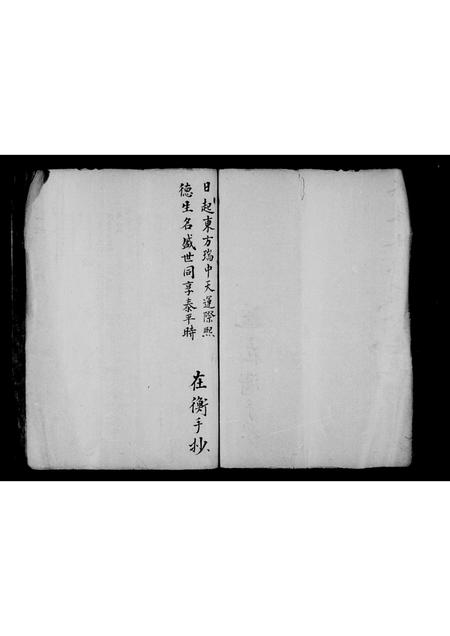 日起東方瑞中天運際熙
德生名盛世同享泰平時
在衡手抄